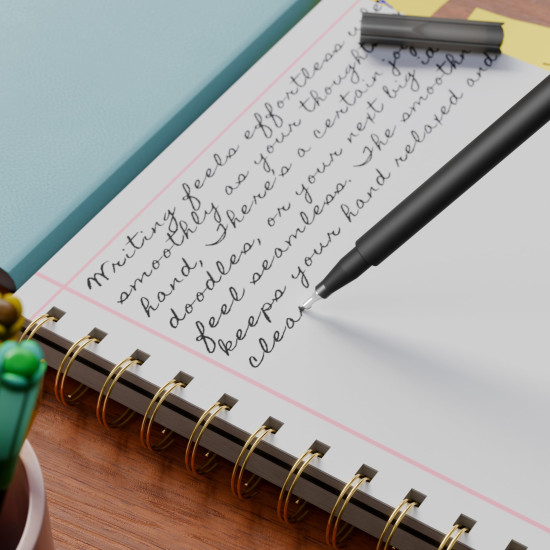 Writing feels effortless whe
smoothly as your thought
hand, There's a certain joy
doodles, or your next big id
feel seamless. The smooth
keeps your hand relaxed and
clea